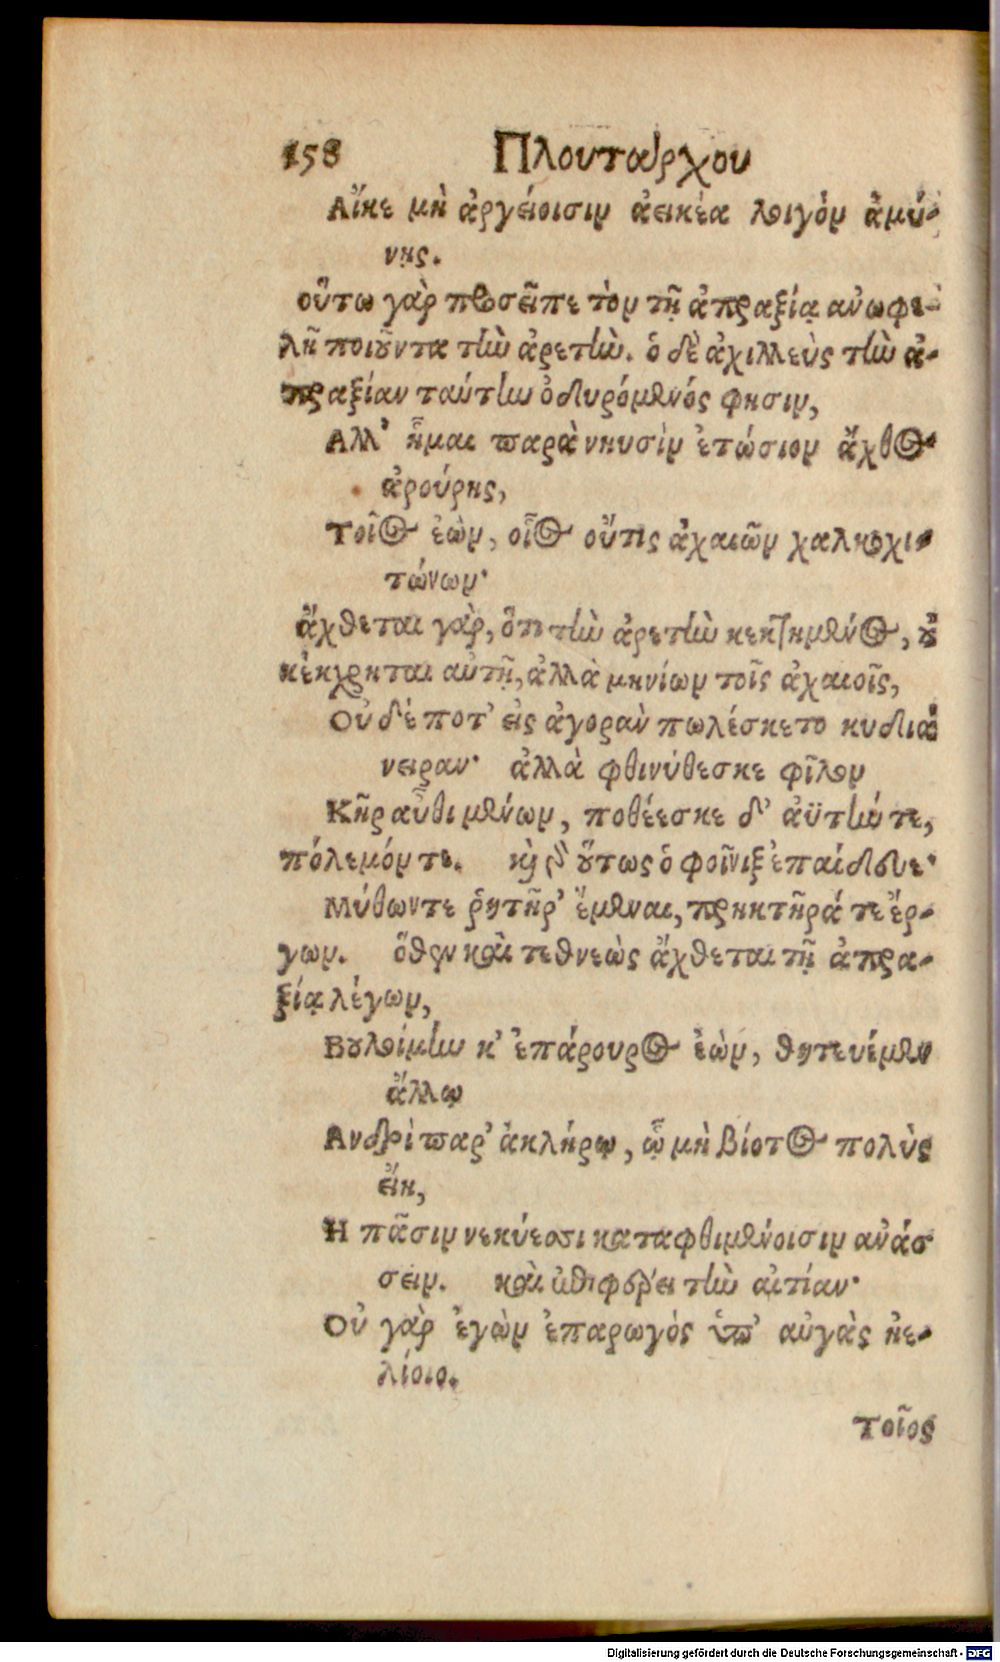 158 Πλουτάρχου
Αἴκε μὴ ἀργείοισιν ἀεικέα λοιγὸν ἀμύ-
νῃς.
οὕτω γὰρ προσεῖπε τὸν τῇ ἀπραξίᾳ ἀνωφε-
λῆ ποιοῦντα τὴν ἀρετήν. ὁ δὲ ἀχιλλεὺς τὴν ἀ-
πραξίαν ταύτην ὀδυρόμενός φησιν,
Αλλ' ἧμαι παρὰ νηυσὶν ἐτώσιον ἄχθος
ἀρούρης,
Τοῖος ἐὼν, οἷος οὔτις ἀχαιῶν χαλκοχι-
τώνων·
ἄχθεται γὰρ, ὅτι τὴν ἀρετὴν κεκτημένος, οὐ
κέκχρηται αὐτῇ, ἀλλὰ μηνίων τοῖς ἀχαιοῖς,
Οὐδέ ποτ' εἰς ἀγορὰν πωλέσκετο κυδιά
νειραν· ἀλλὰ φθινύθεσκε φῖλον
Κῆρ αὖθι μένων, ποθέεσκε δ' ἀϋτήν τε,
πόλεμόν τε. καὶ γὰρ οὕτως ὁ φοῖνιξ ἐπαίδευε·
Μύθωντε ῥητῆρ' ἔμεναι, πρηκτῆρά τε ἔρ-
γων. ὅθεν καὶ τεθνεὼς ἄχθεται τῇ ἀπρα-
ξίᾳ λέγων,
Βουλοίμην κ' ἐπάρουρος ἐὼν, θητευέμεν
ἄλλῳ
Ανδρὶ παρ' ἀκλήρῳ, ᾧ μὴ βίοτος πολὺς
εἴη,
Η πᾶσιν νεκύεσσι καταφθιμένοισιν ἀνάσ
σειν. καὶ ἐπιφέρει τὴν αἰτίαν·
Οὐ γὰρ ἐγὼν ἐπαρωγός ὑπ' αὐγὰς ἠε-
λίοιο.
Τοῖος
Digitalisierung gefördert durch die Deutsche Forschungsgemeinschaft - DFG